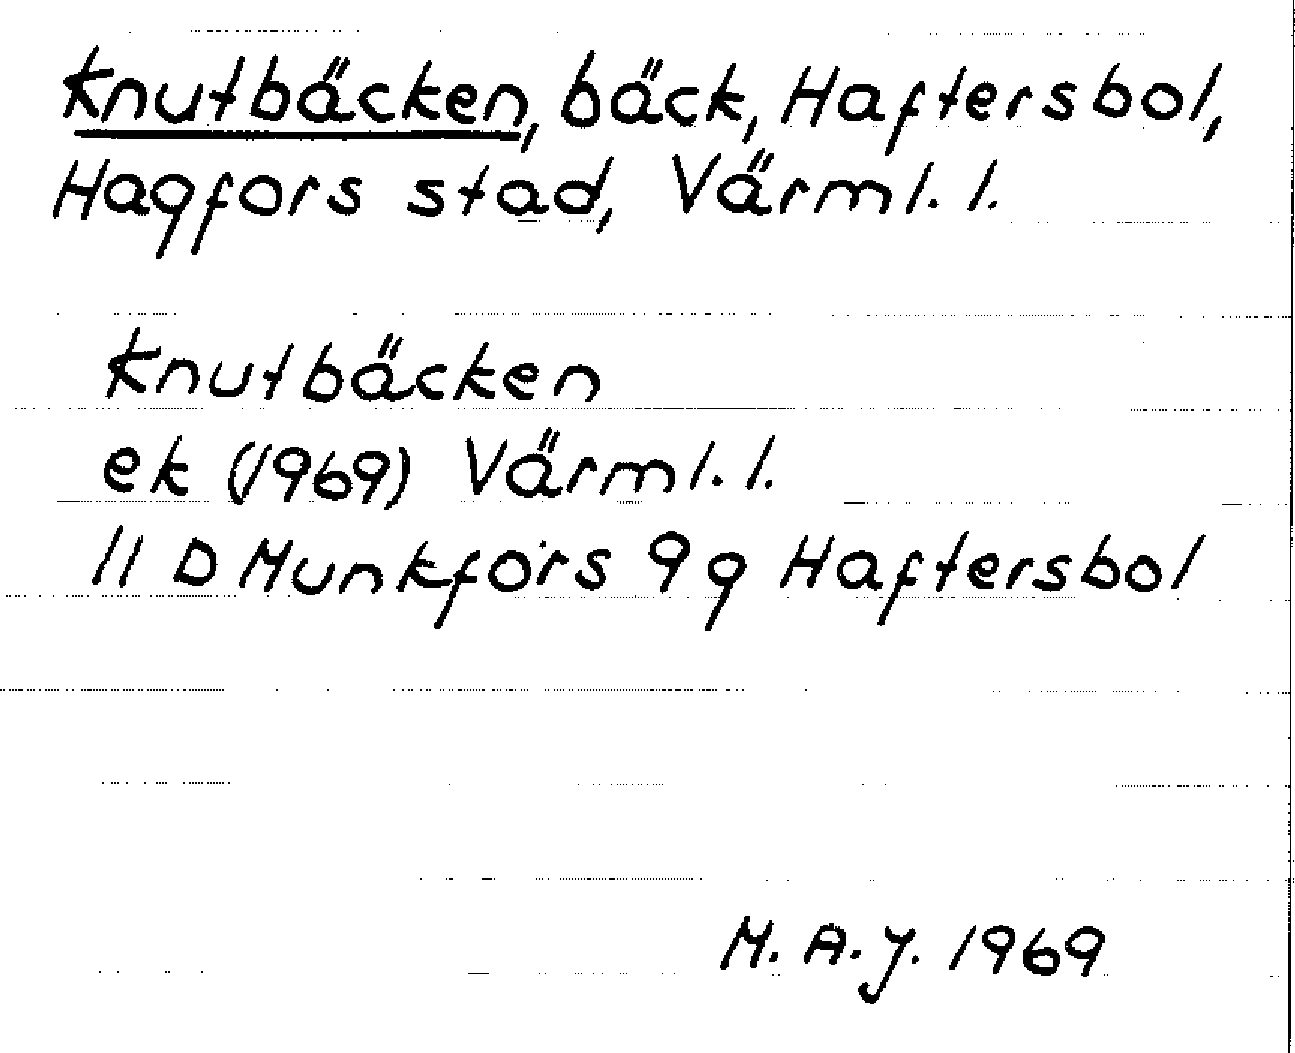 Knutbäcken, bäck, Haftersbol,
Hagfors stad, Värml. l.
Knutbäcken
ek (1969) Värml. l.
11 D Munkfors 9 g Haftersbol
M. A. J. 1969